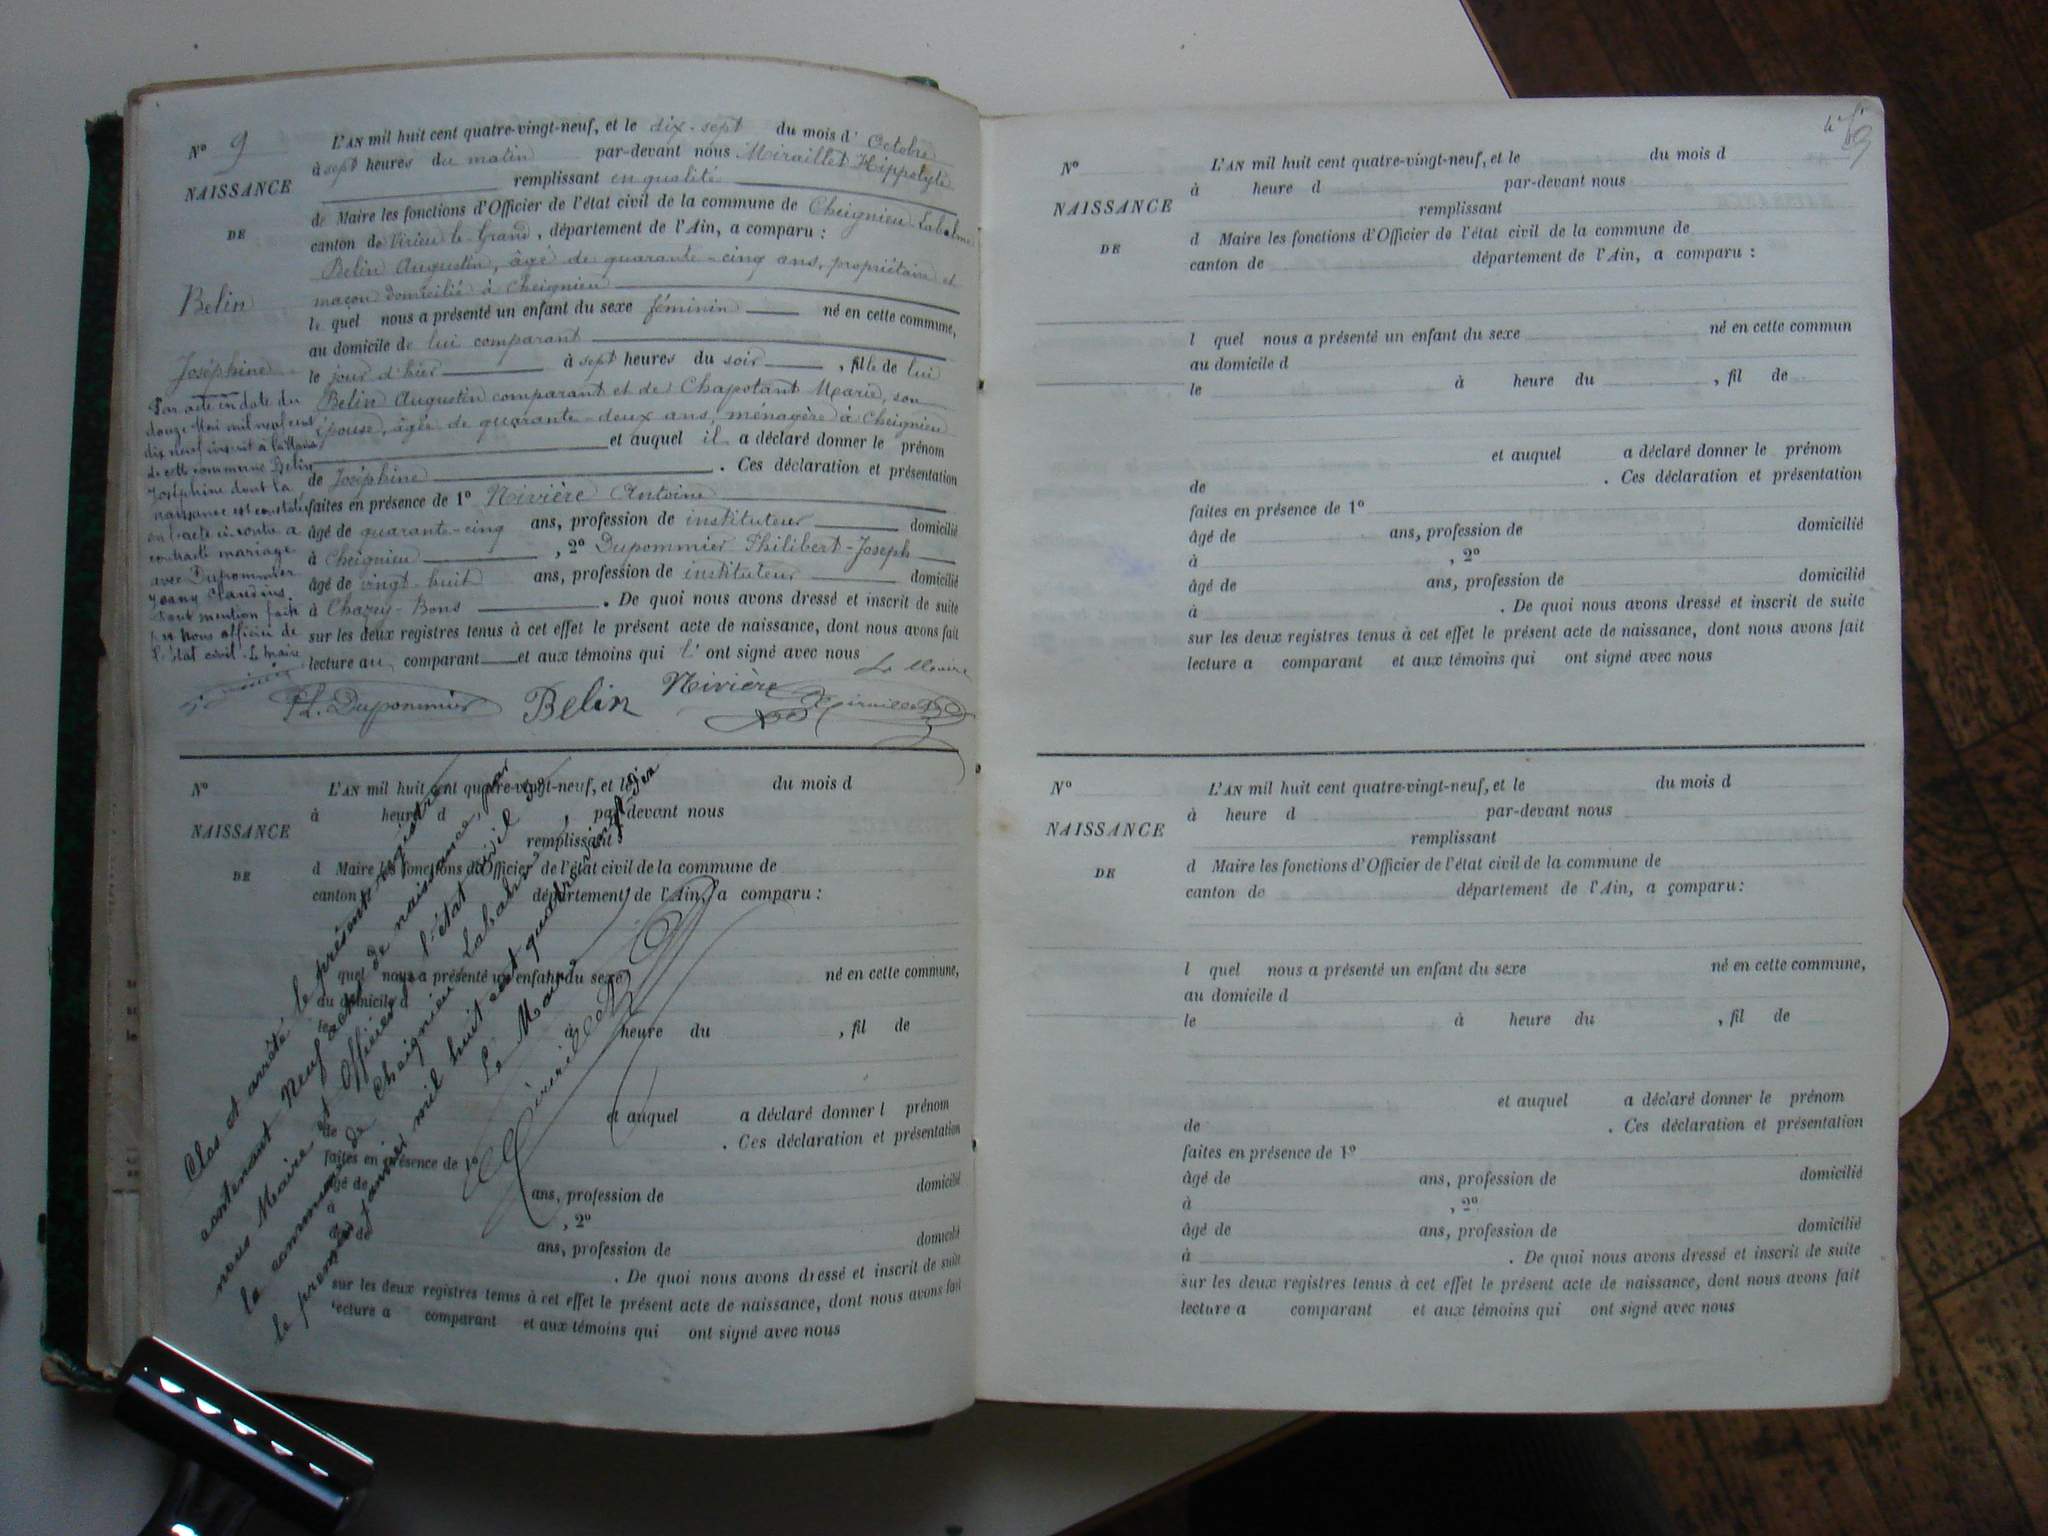 N° 9
NAISSANCE
DE
Belin
Joséphine
Par acte en date du
douze Mai mil neuf cent
dix neuf inscrit à la Mairie
de cette commune Belin
Joséphine dont la
naissance est constatée
en l'acte ci-contre a
contracté mariage
avec Dupommier
Claudius.
Dont mention faite
par Nous officier de
l'état civil. Le Maire
L'AN mil huit cent quatre-vingt-neuf, et le dix-sept du mois d' Octobre
à sept heures du matin par-devant nous Miraillet Hippolyte
remplissant en qualité
de Maire les fonctions d'Officier de l'état civil de la commune de Cheignieu-Labalme
canton de Virieu-le-Grand, département de l'Ain, a comparu :
Belin Augustin, âgé de quarante-cinq ans, propriétaire et
maçon domicilié à Cheignieu
le quel nous a présenté un enfant du sexe féminin né en cette commune,
au domicile de lui comparant
le jour d'hier à sept heures du soir, fille de lui
Belin Augustin comparant et de Chapotant Marie, son
épouse, âgée de quarante-deux ans, ménagère à Cheignieu
et auquel il a déclaré donner le prénom
de Joséphine. Ces déclaration et présentation
faites en présence de 1° Nivière Antoine
âgé de quarante-cinq ans, profession de instituteur domicilié
à Cheignieu, 2° Dupommier Philibert-Joseph
âgé de vingt-huit ans, profession de instituteur domicilié
à Chazey-Bons. De quoi nous avons dressé et inscrit de suite
sur les deux registres tenus à cet effet le présent acte de naissance, dont nous avons fait
lecture au comparant et aux témoins qui l'ont signé avec nous
Le Maire
Ph. Dupommier Belin Nivière Miraillet
N°
NAISSANCE
DE
L'AN mil huit cent quatre-vingt-neuf, et le du mois d
à heure d, par-devant nous
remplissant
d Maire les fonctions d'Officier de l'état civil de la commune de
canton d département de l'Ain, a comparu :
quel nous a présenté un enfant du sexe né en cette commune,
au domicile d
le à heure du, fil de
et auquel a déclaré donner l prénom
de. Ces déclaration et présentation
faites en présence de 1°
âgé de ans, profession de domicilié
à, 2°
âgé de ans, profession de domicilié
. De quoi nous avons dressé et inscrit de suite
sur les deux registres tenus à cet effet le présent acte de naissance, dont nous avons fait
lecture a comparant et aux témoins qui ont signé avec nous
Clos et arrêté le présent registre
contenant Neuf actes de naissance, par
nous Maire et Officier de l'état civil de
la commune de Cheignieu Labalme,
le premier janvier mil huit cent quatre vingt dix
Le Maire
Miraillet
N°
NAISSANCE
DE
L'AN mil huit cent quatre-vingt-neuf, et le du mois d
à heure d par-devant nous
remplissant
d Maire les fonctions d'Officier de l'état civil de la commune de
canton de département de l'Ain, a comparu :
l quel nous a présenté un enfant du sexe né en cette commun
au domicile d
le à heure du, fil de
et auquel a déclaré donner le prénom
de. Ces déclaration et présentation
faites en présence de 1°
âgé de ans, profession de domicilié
à, 2°
âgé de ans, profession de domicilié
à. De quoi nous avons dressé et inscrit de suite
sur les deux registres tenus à cet effet le présent acte de naissance, dont nous avons fait
lecture a comparant et aux témoins qui ont signé avec nous
N°
NAISSANCE
DE
L'AN mil huit cent quatre-vingt-neuf, et le du mois d
à heure d par-devant nous
remplissant
d Maire les fonctions d'Officier de l'état civil de la commune de
canton de département de l'Ain, a comparu:
l quel nous a présenté un enfant du sexe né en cette commune,
au domicile d
le à heure du, fil de
et auquel a déclaré donner le prénom
de. Ces déclaration et présentation
faites en présence de 1°
âgé de ans, profession de domicilié
à, 2°
âgé de ans, profession de domicilié
à. De quoi nous avons dressé et inscrit de suite
sur les deux registres tenus à cet effet le présent acte de naissance, dont nous avons fait
lecture a comparant et aux témoins qui ont signé avec nous